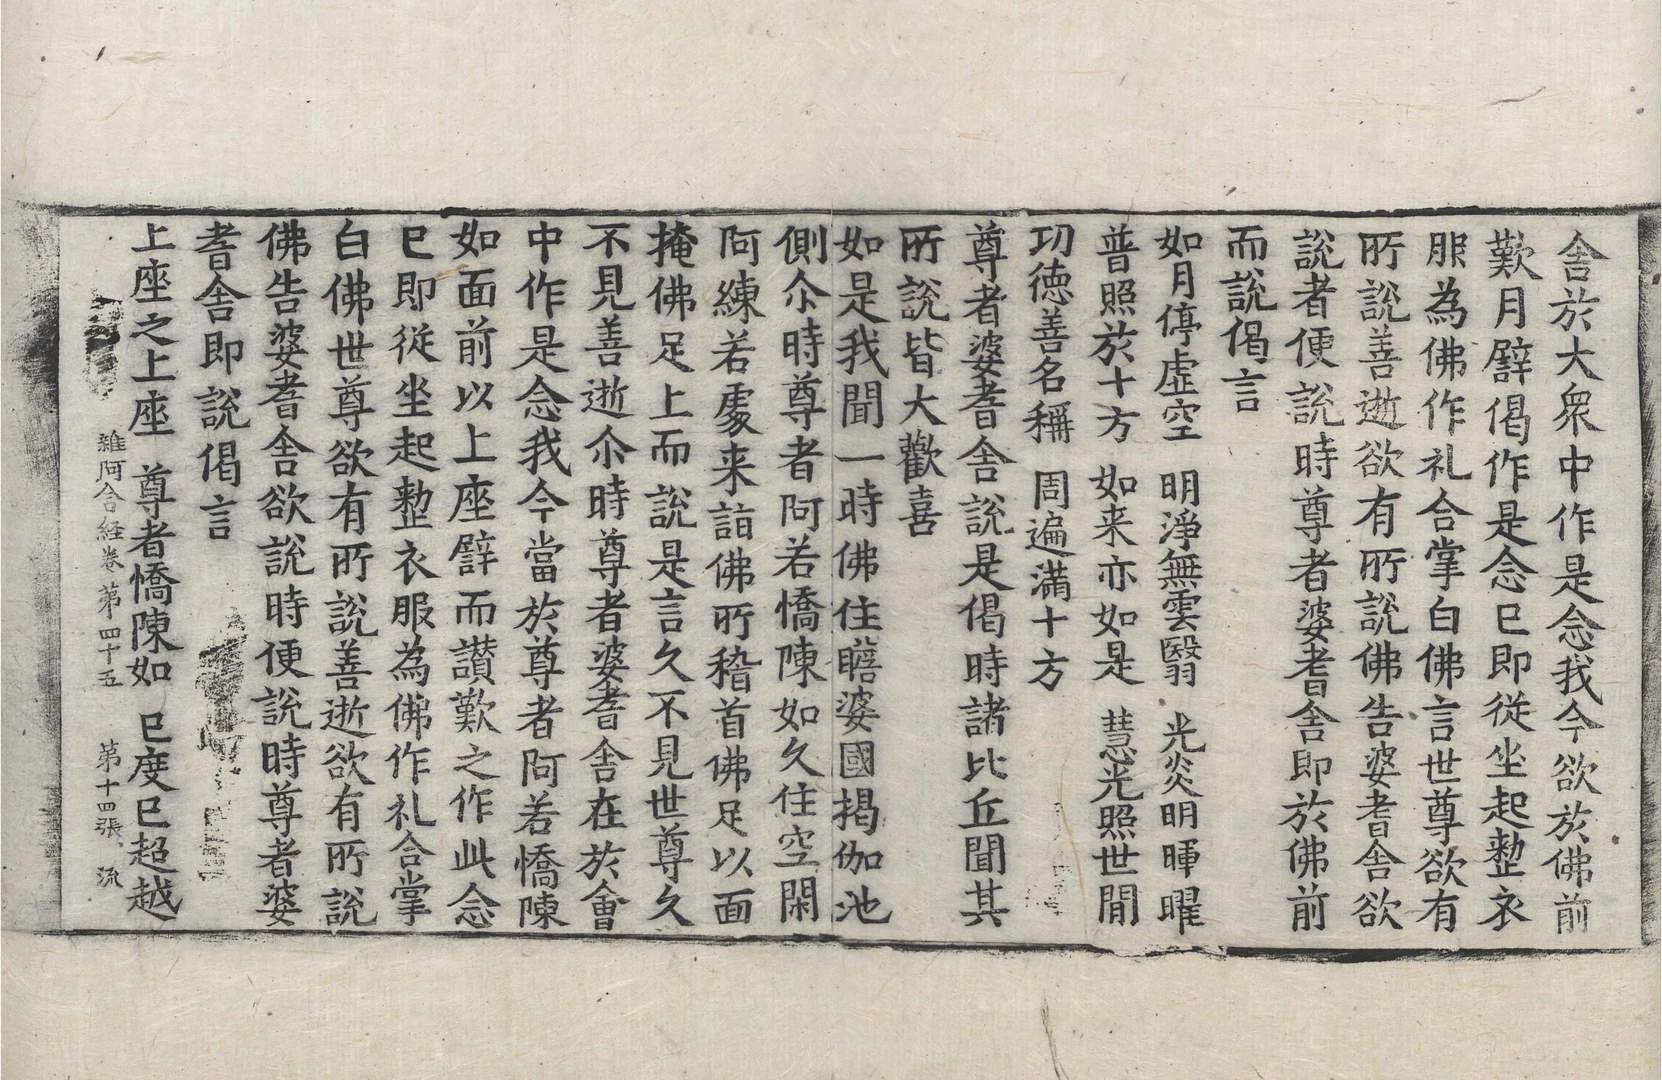 舎於大衆中作是念我今欲於佛前
歎月譬偈作是念已即從坐起整衣
服為佛作礼合掌白佛言世尊欲有
所說善逝欲有所說佛告婆耆舎欲
說者便說時尊者婆耆舎即於佛前
而說偈言
如月停虚空　明淨無雲翳　光炎明暉曜
普照於十方　如来亦如是　慧光照世間
功德善名稱　周遍滿十方
尊者婆耆舎說是偈時諸比丘聞其
所說皆大歡喜
如是我聞一時佛住瞻婆國揭伽池
側尒時尊者阿若憍陳如久住空閑
阿練若處来詣佛所稽首佛足以面
掩佛足上而說是言久不見世尊久
不見善逝尒時尊者婆耆舎在於會
中作是念我今當於尊者阿若憍陳
如面前以上座譬而讃歎之作此念
已即從坐起整衣服為佛作礼合掌
白佛世尊欲有所說善逝欲有所說
佛告婆耆舎欲說時便說時尊者婆
耆舎即說偈言
上座之上座　尊者憍陳如　已度已超越
雜阿含経卷第四十五　第十四張　流